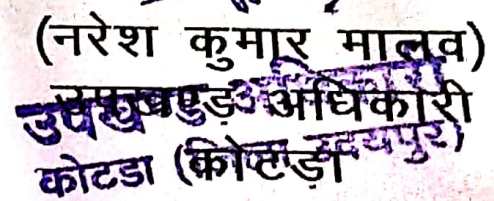 (नरेश कुमार मालव)
उपखण्ड अधिकारी
कोटडा (कोटड़ा उदयपुर)